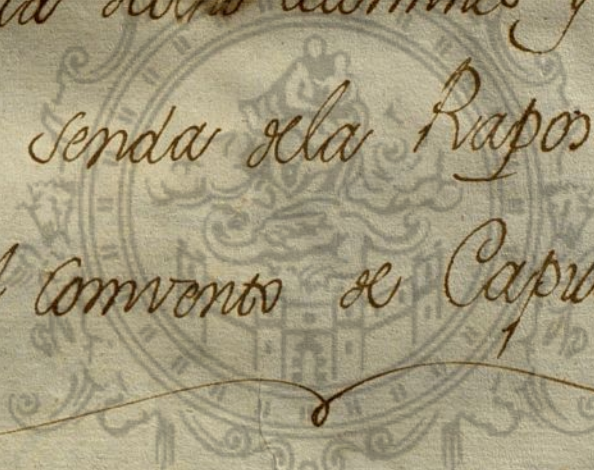 senda dela Rapos
comvento de Capu